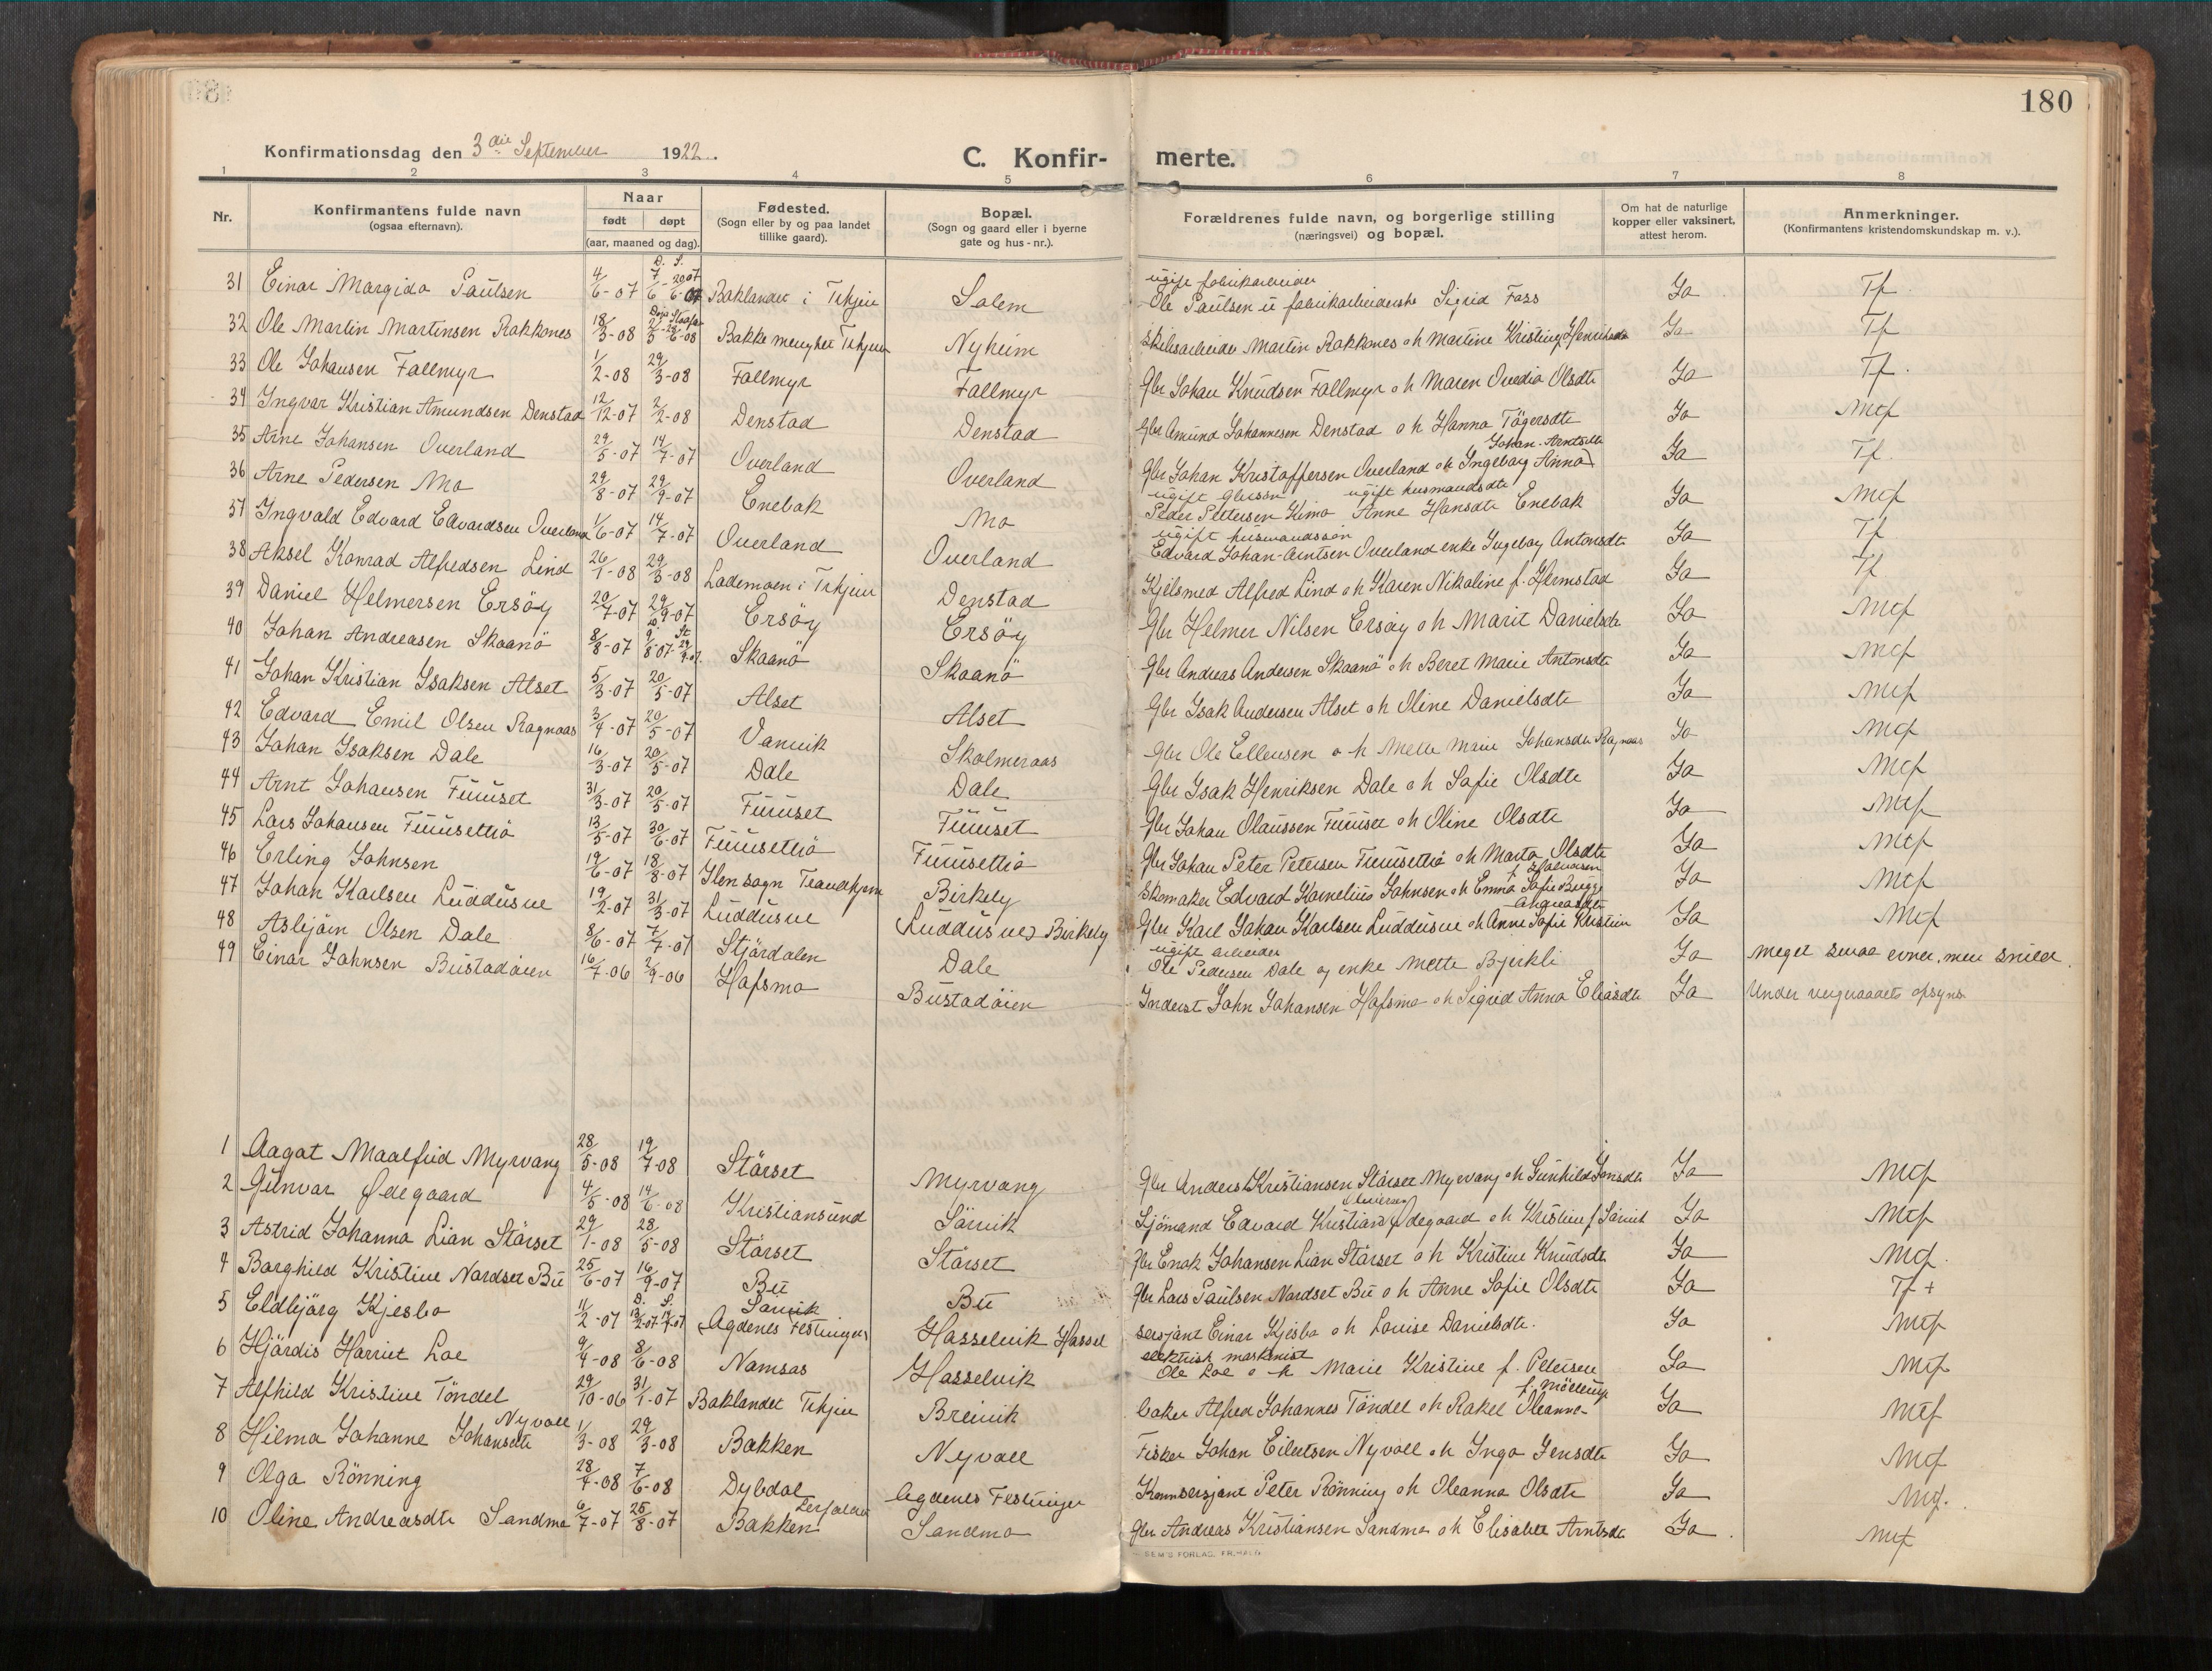 180
Konfirmationsdag den 3die September 1922.
C. Konfir- merte.
1 2 3 4 5 6 7 8
Nr.
Konfirmantens fulde navn
(ogsaa efternavn).
Naar
født døpt
(aar, maaned og dag).
Fødested.
(Sogn eller by og paa landet
tillike gaard).
Bopæl.
(Sogn og gaard eller i byerne
gate og hus-nr.).
Forældrenes fulde navn, og borgerlige stilling
(næringsvei) og bopæl.
Om hat de naturlige
kopper eller vaksinert,
attest herom.
Anmerkninger.
(Konfirmantens kristendomskundskap m. v.).
31 Einar Margido Paulsen 4/6-07 D. 7/6 S. 20/6-07 Baklandet i Trhjem Salem ugift fabrikarbeider Ole Paulsen u fabrikarbeiderske Sigrid Foss Ja Tf.
32 Ole Martin Martinsen Rokkones 18/3-08 Bakke menighet Trhjem Nyheim Martin Rokkones o h Martine Kristine Henriksdt Ja Tf
33 Ole Johansen Fallmyr 1/2-08 29/3-08 Fallmyr Fallmyr Gbr Johan Knudsen Fallmyr o h Maren Ovedia Olsdtr Ja Tf.
34 Ingvar Kristian Amundsen Denstad 12/12-07 2/2-08 Denstad Denstad Gbr Amund Johannesen Denstad o h Hanna Tögersdtr Ja Mef
35 Arne Johansen Overland 29/5-07 14/7-07 Overland Overland Gbr Johan Kristoffersen Overland o h Ingeborg Anna Johan-Arntsdtr Ja Tf.
36 Arne Pedersen Mo 29/8-07 29/9-07 Enebak Mo ugift gbrsøn Peder Pettersen Kimo ugift husmandsdtr Anne Hansdtr Enebak Ja Mef
37 Ingvald Edvard Edvardsen Overland 1/6-07 14/7-07 Overland Overland ugift husmandssøn Edvard Johan-Arntsen Overland enke Ingeborg Antonsdtr Ja Tf
38 Aksel Konrad Alfredsen Lind 26/1-08 29/3-08 Lademoen i Trhjem Denstad Kjelsmed Alfred Lind o h Karen Nikoline f. Hermstad Ja Tf
39 Daniel Helmersen Ersöy 20/7-07 29/9-07 Ersöy Ersöy Gbr Helmer Nilsen Ersöy o h Marit Danielsdtr Ja Mef
40 Johan Andreasen Skaanö 8/8-07 9/8-07 29/9-07 Skaanö Skaanö Gbr Andreas Andersen Skaanö o h Beret Marie Antonsdtr Ja Mef
41 Johan Kristian Isaksen Alset 5/3-07 20/5-07 Alset Alset Gbr Isak Andersen Alset o h Oline Danielsdtr Ja Mef
42 Edvard Emil Olsen Ragnaas 3/4-07 20/5-07 Vanvik Skolmeraas Gbr Ole Ellensen o h Mette Marie Johansdtr Ragnaas Ja Mef
43 Johan Isaksen Dale 16/3-07 20/5-07 Dale Dale Gbr Isak Henriksen Dale o h Sofie Olsdtr Ja Mef
44 Arnt Johansen Fuuset 31/3-07 20/5-07 Fuuset Fuuset Gbr Johan Olaussen Fuuset o h Oline Olsdtr Ja Mef
45 Lars Johansen 13/5-07 30/6-07 Gbr Johan Peter Petersen o h Marta Olsdtr Ja Mef
46 Erling Johnsen 19/6-07 18/8-07 Ilen sogn Trondhjem Birkely Skomaker Edvard Kornelius Johnsen o h Emma Sofie Bugge Ja Mef
47 Johan Karlsen Luddusve 19/2-07 31/3-07 Luddusve (Luddusve) Birkely Gbr Karl Johan Karlsen Luddusve o h Anne Sofie Kristine Andreasdtr Ja Mef
48 Asbjörn Olsen Dale 8/6-07 7/7-07 Stjördalen Dale ugift arbeider Ole Pedersen Dale og enke Mette Bjerkli Ja Meget smaa evner, men snild.
49 Einar Johnsen Bustadöien 16/7-06 2/9-06 Hofsmo Bustadöien Inderst John Johansen Hofsmo o h Sigrid Anna Eliasdtr Ja Under vergeraadets opsyn
1 Aagot Maalfrid Myrvang 28/5-08 19/7-08 Störset Myrvang Gbr Anders Kristiansen Störset Myrvang o h Gunhild Jonsdtr Ja Mef
2 Gunvor Ødegaard 4/5-08 14/6-08 Kristiansund Sörvik Sjömand Edvard Kristian Ødegaard o h Kristine f Sörvik Ja Mef
3 Astrid Johanna Lian Störset 29/1-08 28/5-08 Störset Störset Gbr Enok Johansen Lian Störset o h Kristine Knudsdtr Ja Mef.
4 Borghild Kristine Nordset Bü 25/6-07 16/9-07 Bü Bü Gbr Lars Paulsen Nordset Bü o h Anne Sofie Olsdtr Ja Tf +
5 Eldbjörg Kjesbo 11/2-07 D. 13/2-07 S. 14/7-07 Sörvik (Agdenes Festninger) Hasselvik Hassel Sersjant Einar Kjesbo o h Lovise Danielsdtr. Ja Mef
6 Hjördis Harriet Loe 9/4-08 8/6-08 Namsos Hasselvik elektrisk maskinist Ole Loe o h Marie Kristine f. Petersen Ja Mef
7 Alfhild Kristine Töndel 29/10-06 31/1-07 Baklandet Trhjem Breivik baker Alfred Johannes Töndel o h Rakel Oleanne f. Möllerup Ja Mef
8 Hilma Johanne Johansdtr Nyvoll 1/3-08 29/3-08 Bakken Nyvoll Fisker Johan Eilertsen Nyvoll o h Inga Jensdtr Ja Mef
9 Olga Rönning 28/4-08 7/6-08 Dybdal Agdenes Festninger Peter Rönning o h Oleanna Olsdtr Ja Mef.
10 Oline Andreasdtr Sandmo 6/7-07 25/8-07 Bakken Sandmo Gbr Andreas Kristiansen Sandmo o h Elisabet Arntsdtr Ja Mef
SEM'S FORLAG. FR.HALD